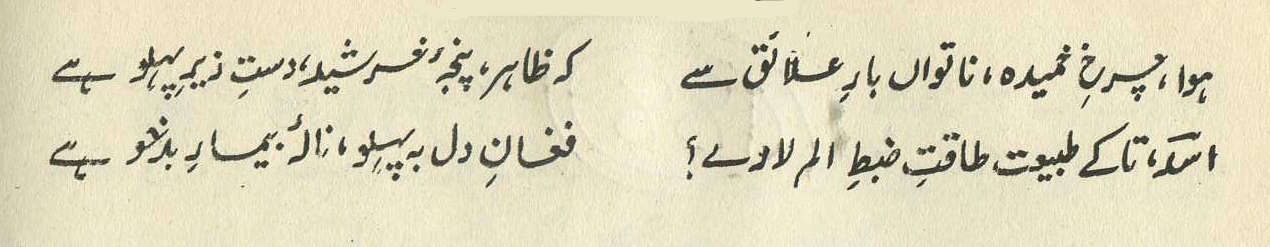 ہوا، چرخِ خمیدہ، ناتواں بارِ علائق سے کہ ظاہر، پنجۂ خرشید، دستِ زیرِ پہلو ہے
اسدؔ، تا کے طبیعت طاقتِ ضبطِ الم لاوے؟ فغانِ دل بہ پہلو، نالۂ بیمارِ بدخو ہے